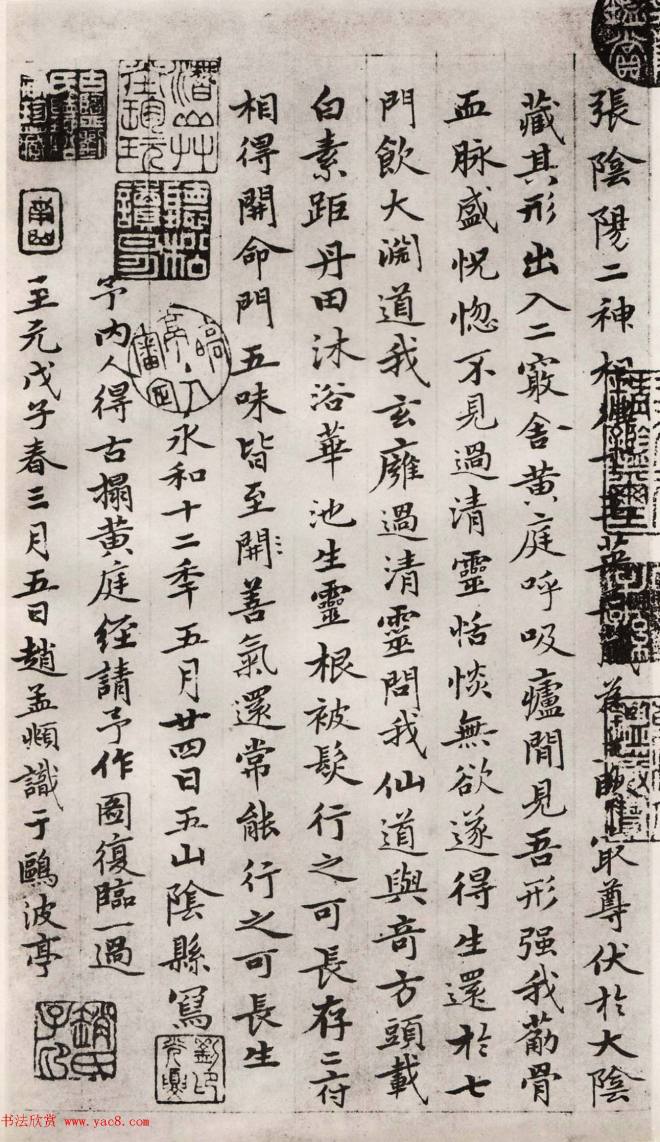 張陰陽二神相
取尊伏於大陰
藏其形出入二竅舍黄庭呼吸廬間見吾形强我筋骨
血脉盛怳惚不見過清靈恬惔無欲遂得生還於七
門飲大淵道我玄癰過清靈問我仙道與奇方頭載
白素距丹田沐浴華池生靈根被髮行之可長存二府
相得開命門五味皆至開善氣還常能行之可長生
永和十二年五月廿四日五山陰縣寫
予内人得古搨黄庭經請予作圖復臨一過
至元戊子春三月五日趙孟頫識于鷗波亭
聽松
趙氏子昂
书法欣赏 www.yac8.com